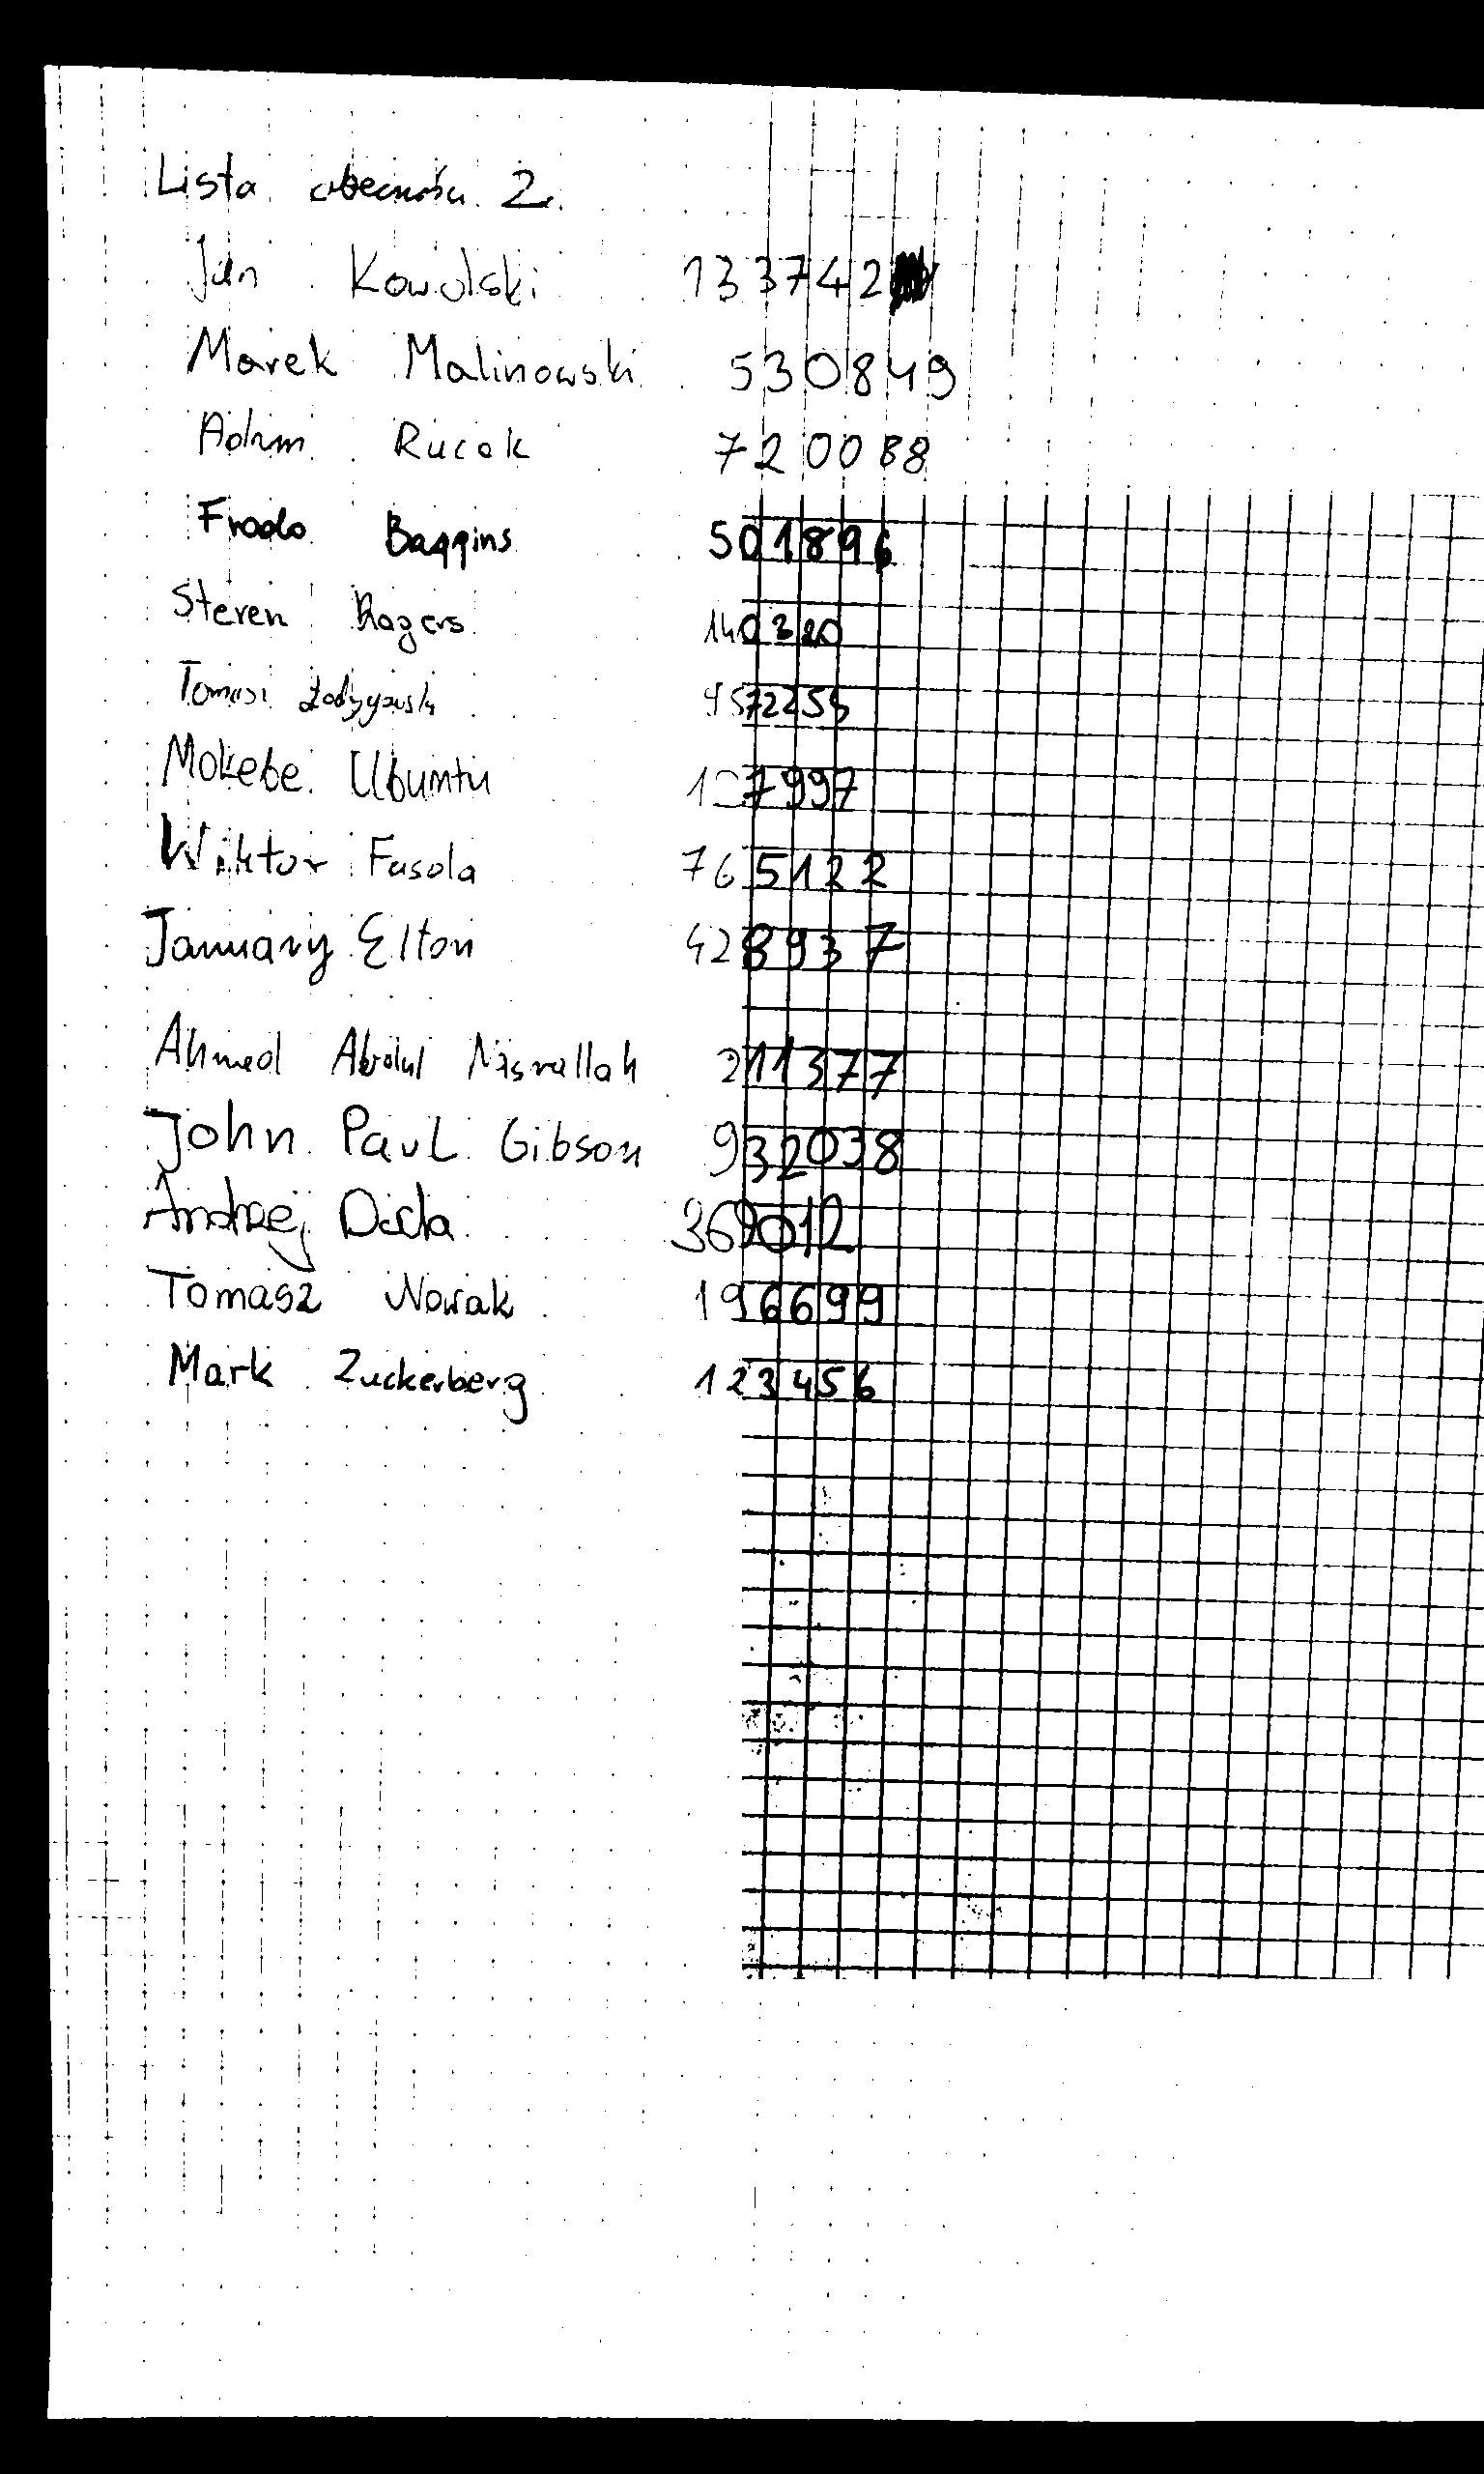 Lista obecności 2.
Jan Kowalski 133742
Marek Malinowski 530849
Adam Rucak 720088
Frodo Baggins 501896
Steven Rogers 140320
Tomasz
Mokebe Ubuntu 107997
Wiktor Fasola 765122
January Elton 428937
Ahmed Abdul Nasrallah 211377
John Paul Gibson 932038
Andrzej Duda 369012
Tomasz Nowak 196699
Mark Zuckerberg 123456